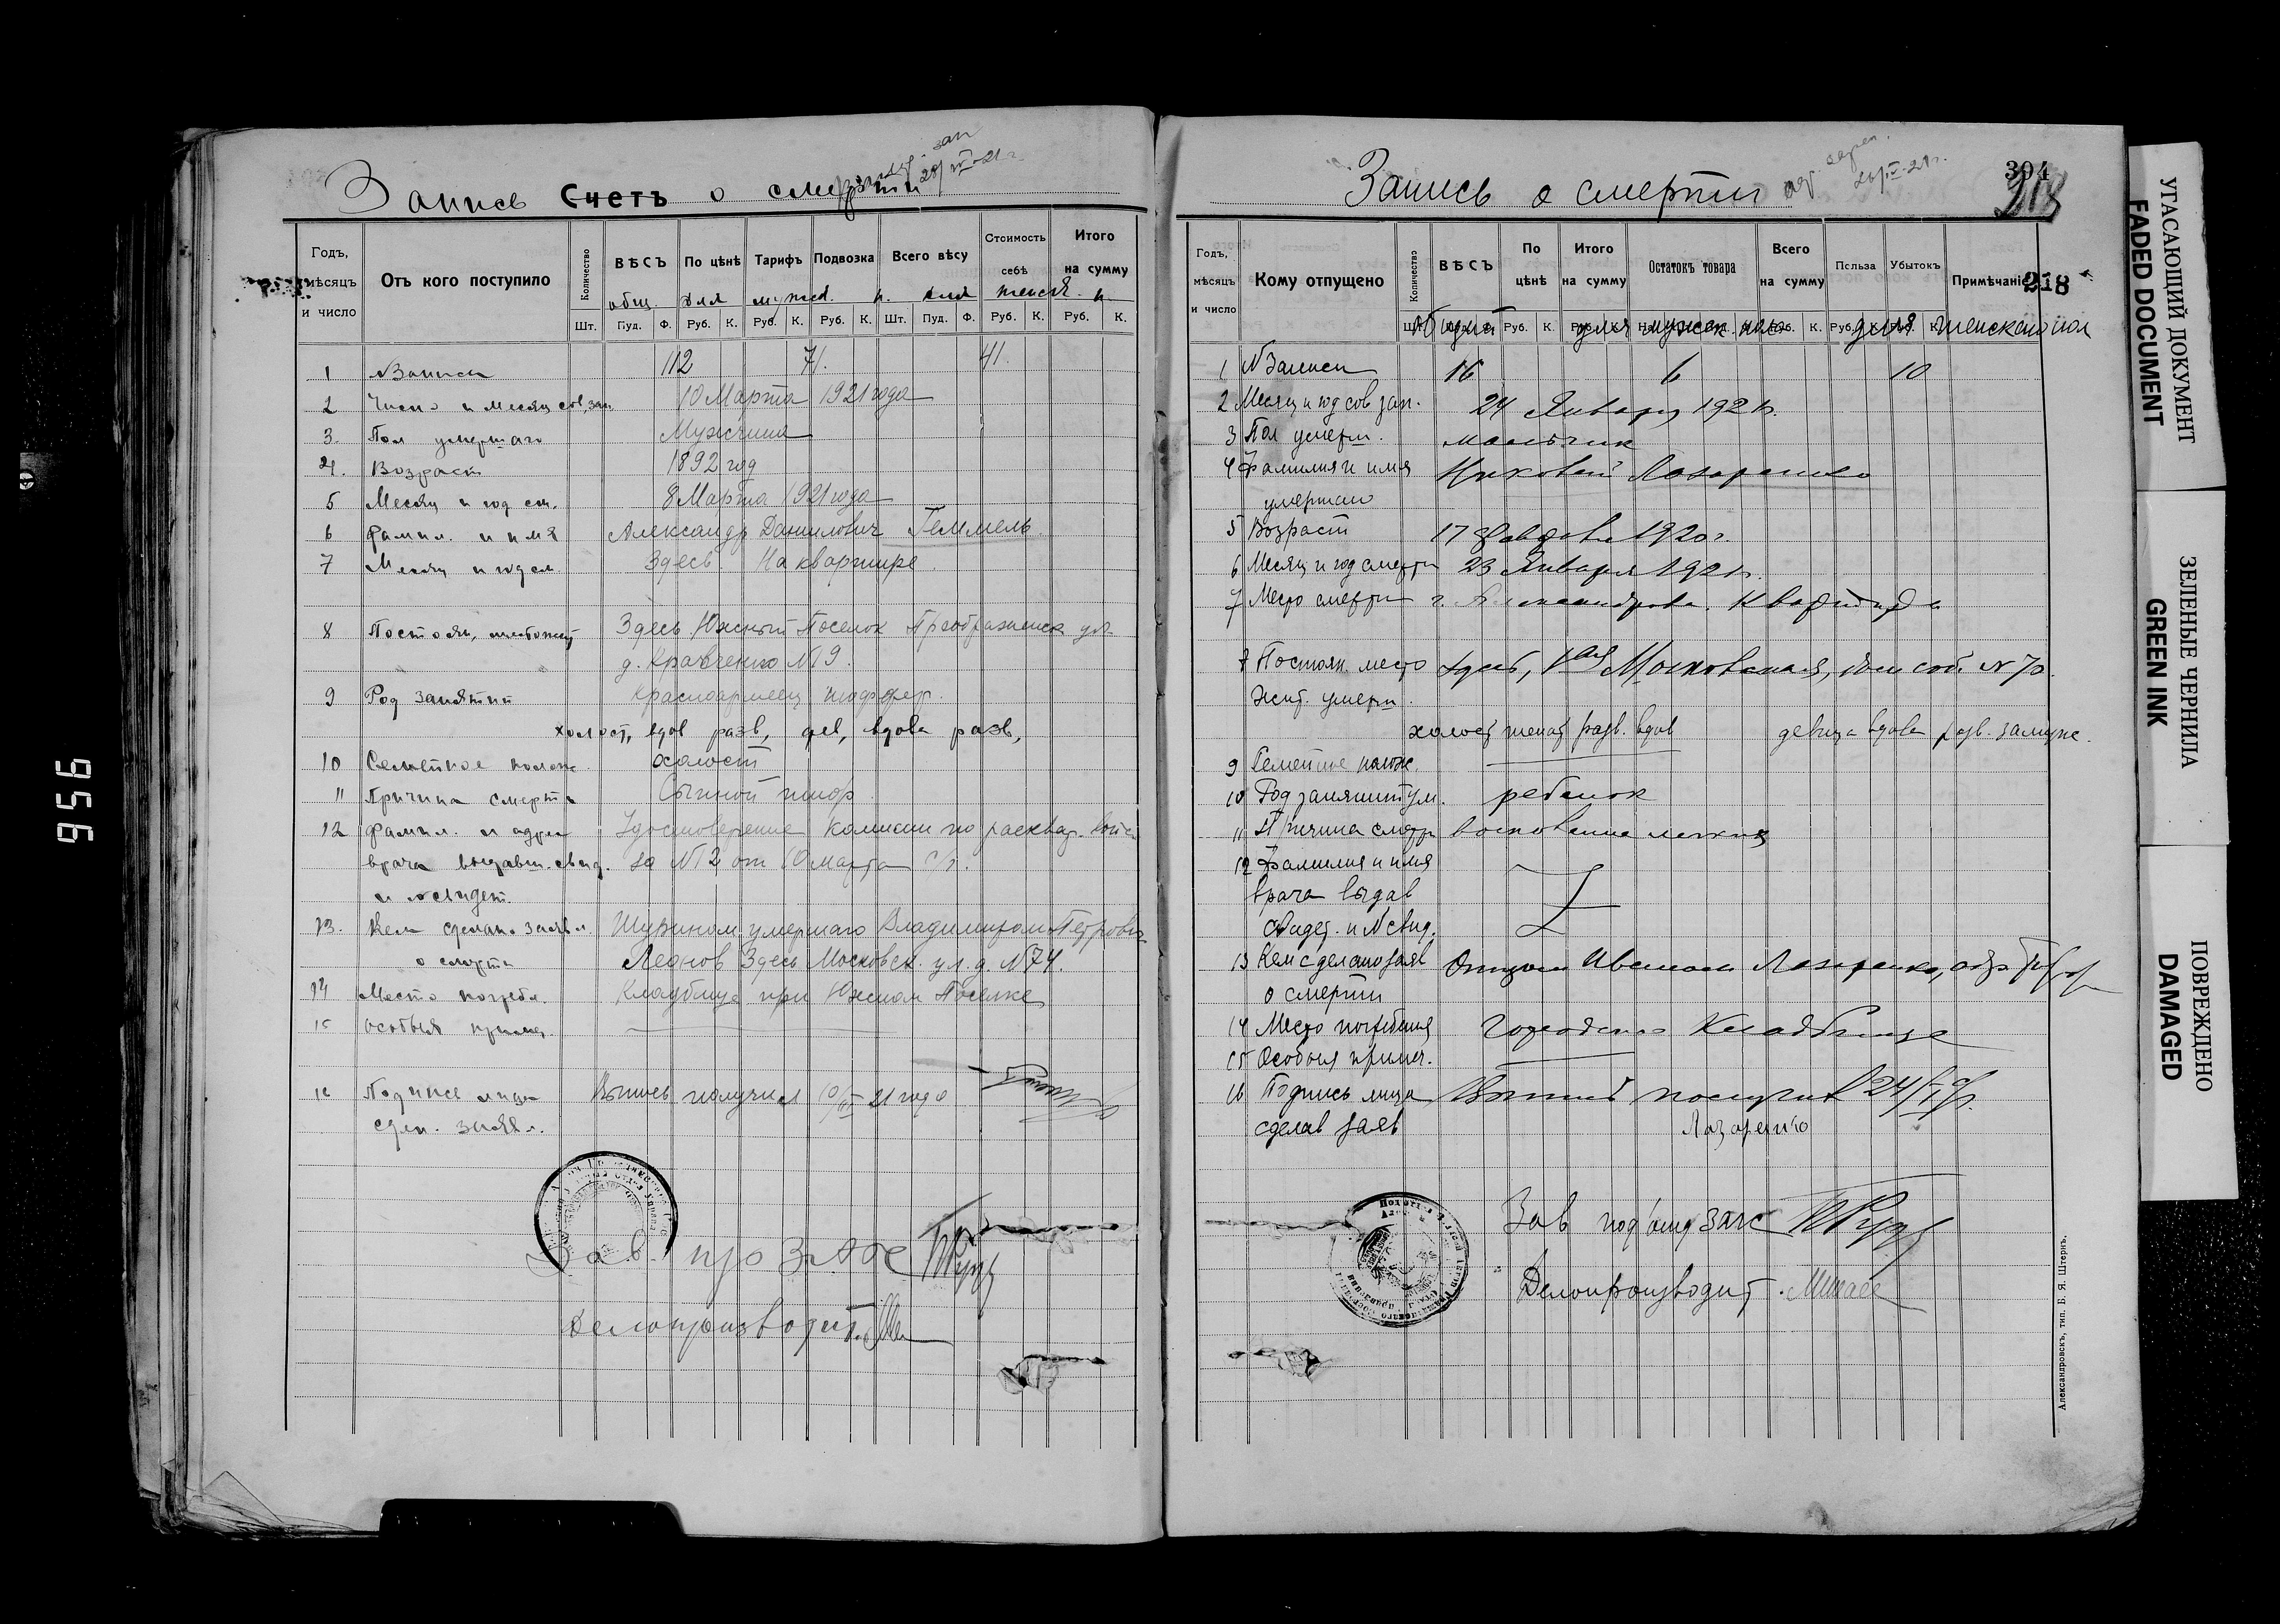 956
Запись Счетъ о смерти
Годъ, мѣсяцъ и число
Отъ кого поступило
Количество
ВѢСЪ
По цѣнѣ
Тарифъ
Подвозка
Всего вѣсу
Стоимость себѣ
Итого на сумму
общ. для мужск. п. для женск. п.
Шт. Пуд. Ф. Руб. К. Руб. К. Руб. К. Шт. Пуд. Ф. Руб. К. Руб. К.
1 № Записи 112 71. 41.
2 Число и месяц сов. зап. 10 Марта 1921 года
3. Пол умершаго Мужчина
4. Возраст 1892 год
5 Месяц и год см. 8 Марта 1921 года
6 Фамил. и имя Александр Данилович Геммель.
7 Здесь На квартире.
8 Постоян. Здесь Южный Поселок Преображенск ул.
д. Кравченко № 9.
9 Род занятий Красноармеец шоффер.
холост, вдов разв, дев, вдова разв,
10 Семейное полож. холост
11 Причина смерти Сыпной тиф.
12 Фамил. и адрес Удостоверение комисии по расквар. войск
врача выдавш. свид. за № 12 от 10 марта с/г.
и № свидет.
13. Кем сделано заявл. Шурином умершаго Владимиром Петрович
о смерти Леонов Здесь Московск. ул. д. № 74.
14 Место погребл. Кладбище при Южном Поселке
15 Особыя примеч.
16 Подпись лица Выпись получил 10/III 21 года
сдел. заявл.
Зав. про ЗАГС
Делопроизводит.
Запись о смерти
304
218
Годъ, мѣсяцъ и число
Кому отпущено
Количество
ВѢСЪ
По цѣнѣ
Итого на сумму
Остатокъ товара
Всего на сумму
Польза
Убытокъ
Примѣчанія
218
Общий для мужск. пола для женскаго пол
1 № Записи 16 6 10
2 Месяц и год сов зап. 24 Января 1921 г.
3 Пол умерш. мальчик
4 Фамилия и имя Лазаренко
умершаго
5 Возраст 17 1920 г.
6 Месяц и год смерти 23 Января 1921 г.
7 Место смерти г. Александровск. Квартира
Постоян. место здесь, 1ая Московская, дом соб. № 70.
жит. умерш.
холост женат разв. вдов девица вдова разв. замужн.
9 Семейное полож.
10 Род занятий ум. ребенок
11 Причина смерти воспаление легких
12 Фамилия и имя
врача выдав
свидет. и № свид.
13 Кем сделано заяв Отцом Иваном Лазаренко,
о смерти
14 Место погребения городское Кладбище
15 Особыя примеч.
16 Подпись лица Выпись получил 24/I с/г.
сделав заяв Лазаренко
Зав под'отд загс
Делопроизводит.
Александровскъ, тип. Б. Я. Штернъ.
УГАСАЮЩИЙ ДОКУМЕНТ
FADED DOCUMENT
ЗЕЛЕНЫЕ ЧЕРНИЛА
GREEN INK
ПОВРЕЖДЕНО
DAMAGED